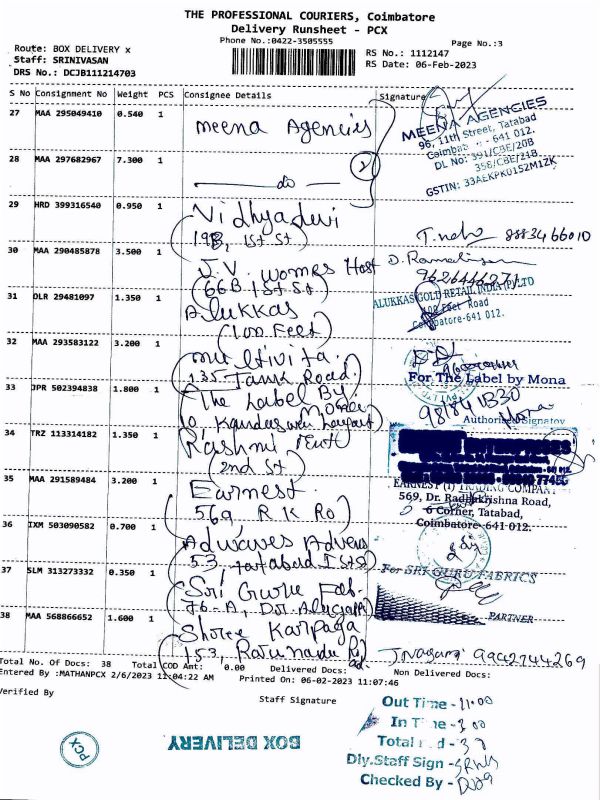 THE PROFESSIONAL COURIERS, Coimbatore
Delivery Runsheet - PCX
Phone No.:0422-3505555
Page No.:3
Route: BOX DELIVERY x
Staff: SRINIVASAN
DRS No.: DCJB111214703
RS No.: 1112147
RS Date: 06-Feb-2023
S No Consignment No Weight PCS Consignee Details Signature
27 MAA 295049410 0.540 1 Meena Agencies
MEENA AGENCIES
96, 11th Street, Tatabad
Coimbatore - 641 012.
DL No: 391/CBE/20B
358/CBE/21B
28 MAA 297682967 7.300 1 do 2
29 HRD 399316540 0.950 1 Vidhyadevi
1st St
8883466010
30 MAA 290485878 3.500 1 J.V. womes Host
(66B 1st St)
31 DLR 29481097 1.350 1 Alukkas
(100 Feet)
ALUKKAS GOLD RETAIL INDIA (P) LTD
100 Feet Road
Coimbatore-641 012.
32 MAA 293583122 3.200 1 multivita.
135 Tank Road
33 JPR 502394838 1.800 1 The Label By
Mona
For The Label by Mona
Mona
Authorised Signatory
34 TRZ 113314182 1.350 1 Rashmi
(2nd St)
35 MAA 291589484 3.200 1 Earnest
569, R K Ro
EARNEST (I) TRADING COMPANY
569, Dr. Radhakrishna Road,
6 Corner, Tatabad,
Coimbatore-641 012.
36 IXM 503090582 0.700 1 Adwaves Advers
53, Tatabad 1st St
37 SLM 313273332 0.350 1 Sri Guru Fab.
76-A, Dr. Alagappa
For SRI GURU FABRICS
PARTNER
38 MAA 568866652 1.600 1 Shree Karpaga
153,
9942744269
Total No. Of Docs: 38 Total COD Amt: 0.00 Delivered Docs: Non Delivered Docs:
Entered By :MATHANPCX 2/6/2023 11:04:22 AM Printed On: 06-02-2023 11:07:46
Verified By
Staff Signature
Out Time - 11.00
In Time - 3.00
Dly.Staff Sign -
Checked By -
PCX
BOX DELIVERY